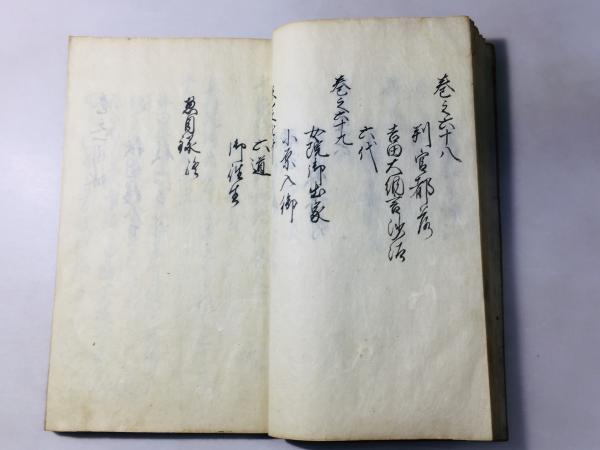 巻之六十八
判官都落
吉田大納言沙汰
六代
巻之六十九
女院御出家
小原入御
六道
御往生
惣目録終